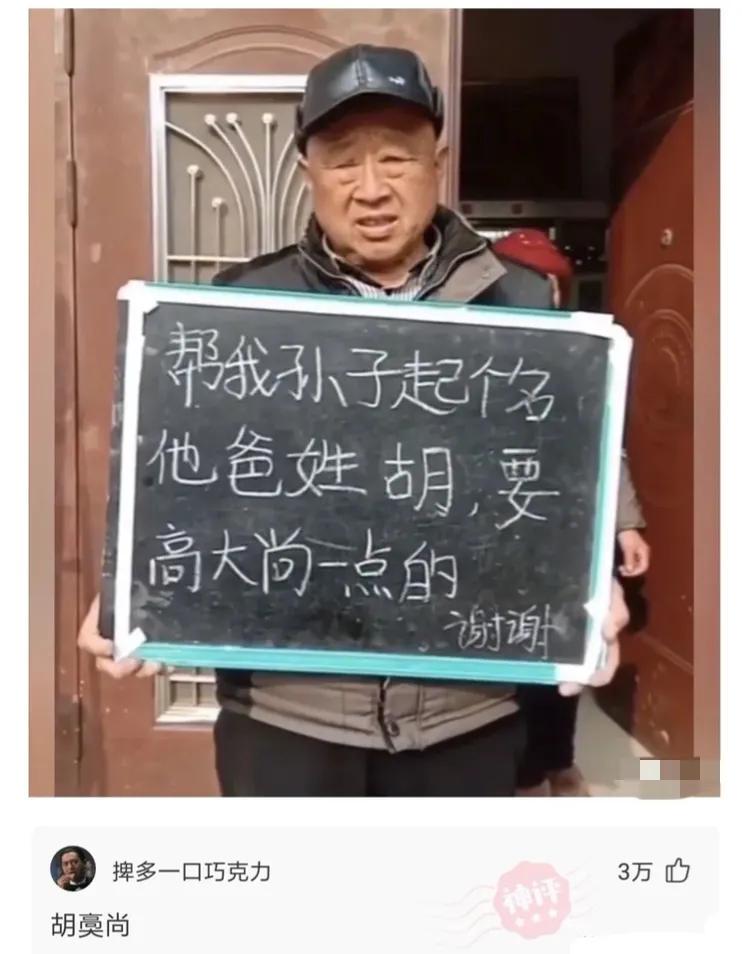 帮我孙子起个名
他爸姓胡，要
高大尚一点的
谢谢
捭多一口巧克力
3万
神评
胡尚